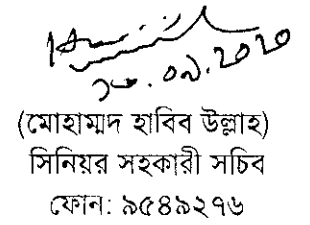 ২০.০৯.২০২০
(মোহাম্মদ হাবিব উল্লাহ)
সিনিয়র সহকারী সচিব
ফোন: ৯৫৪৯২৭৬